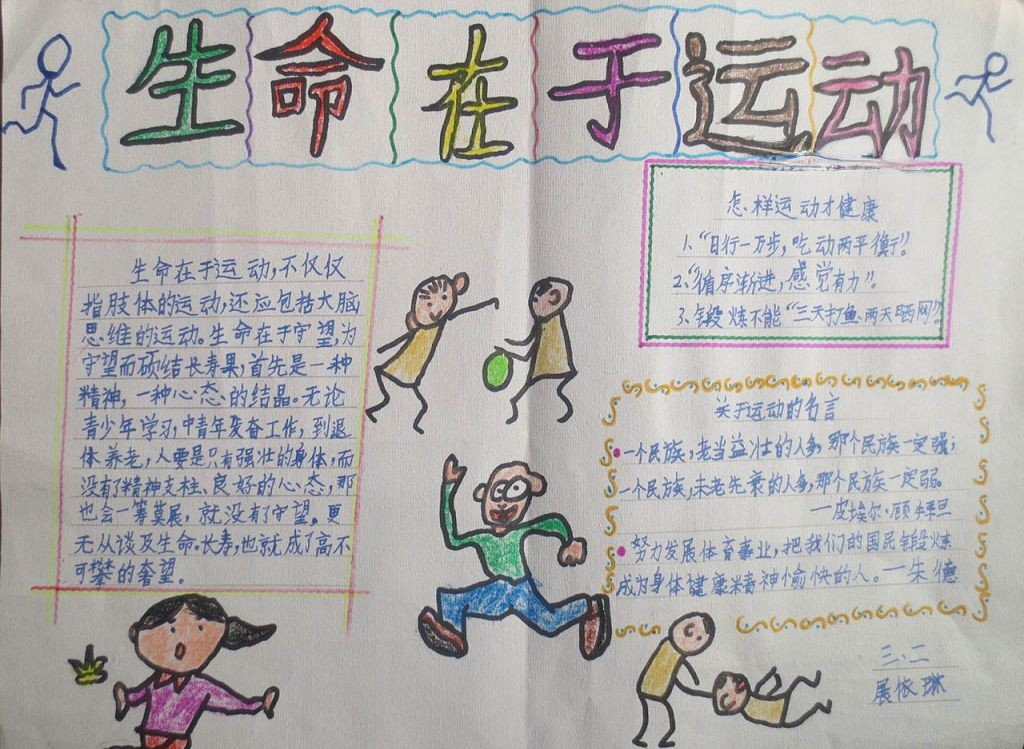 生命在于运动
生命在于运动,不仅仅
指肢体的运动,还应包括大脑
思维的运动。生命在于守望,为
守望而硕结长寿果,首先是一种
精神,一种心态的结晶。无论
青少年学习,中青年发奋工作,到退
休养老,人要是只有强壮的身体,而
没有了精神支柱、良好的心态,那
也会一筹莫展,就没有了守望。更
无从谈及生命、长寿,也就成了高不
可攀的奢望。
怎样运动才健康
1、“日行一万步,吃动两平衡”。
2、“循序渐进,感觉有力”。
3、锻炼不能“三天打鱼、两天晒网”。
关于运动的名言
一个民族,老当益壮的人多,那个民族一定强;
一个民族,未老先衰的人多,那个民族一定弱。
一皮埃尔·顾拜旦
努力发展体育事业,把我们的国民锻炼
成为身体健康精神愉快的人。一朱德
三、二
展依琳